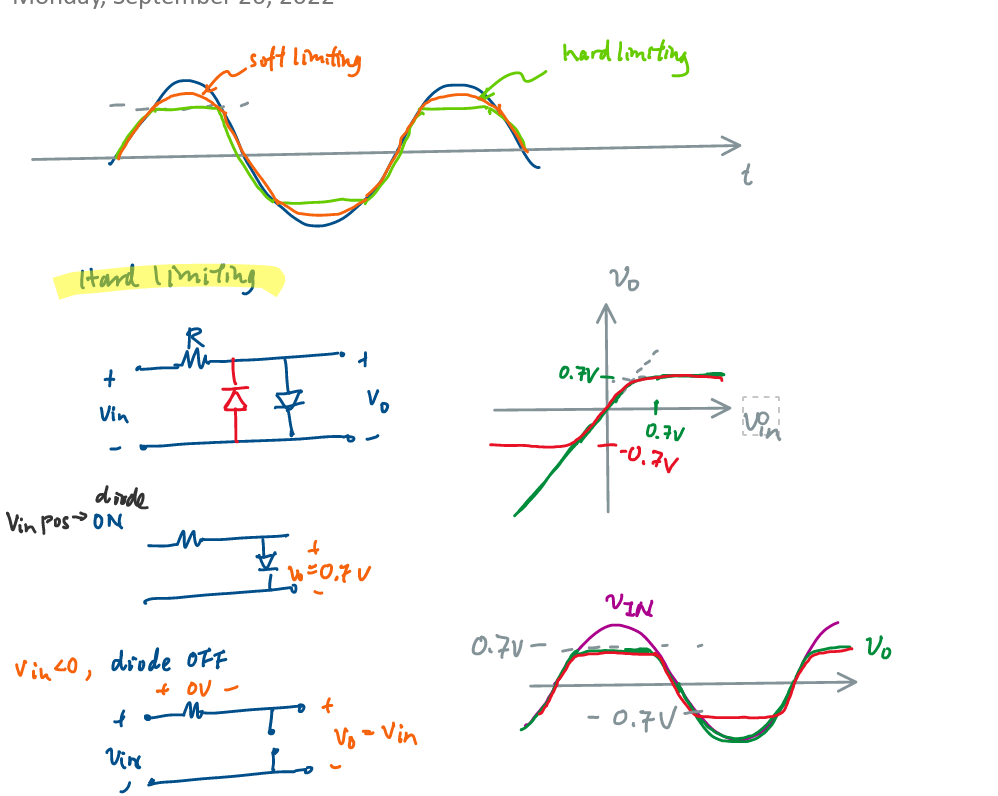 Monday, September 26, 2022
soft limiting
hard limiting
t
Hard limiting
R
+
Vin
-
+
Vo
-
Vo
0.7V
0.7V
-0.7V
Vin
diode
Vin pos → ON
+
Vo=0.7V
-
Vin<0, diode OFF
+ 0V -
+
Vin
-
+
Vo = Vin
-
VIN
0.7V
Vo
-0.7V